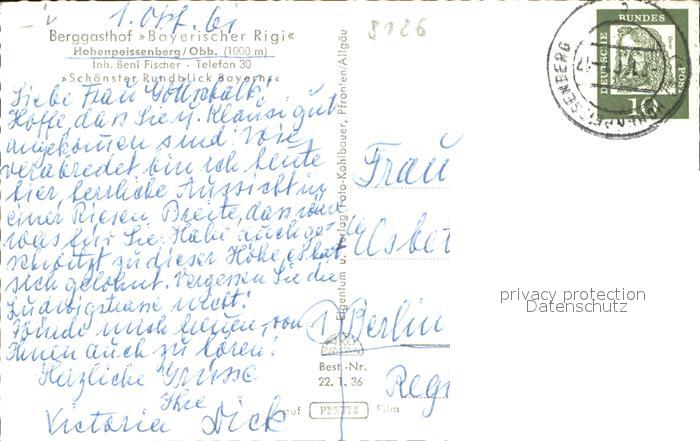 1. Okt. 61
8126
Berggasthof »Bayerischer Rigi«
Hohenpeissenberg/Obb. (1000 m)
Inh. Beni Fischer - Telefon 30
»Schönster Rundblick Bayerns«
Liebe Frau Gottschalk!
Hoffe, dass Sie u. Klausi gut
angekommen sind. Wie
verabredet bin ich heute
hier, herrliche Aussicht in
einer Riesen Breite, das wäre
was für Sie. Habe auch ge-
schwitzt zu dieser Höhe, es hat
sich gelohnt. Vergessen Sie die
Ludwigstrasse nicht!
Würde mich freuen, von
Ihnen auch zu hören!
Herzliche Grüsse
Ihre
Victoria Dick
Eigentum u. Verlag Foto-Kohlbauer, Pfronten/Allgäu
Best.-Nr.
22. 1. 36
auf PERUTZ Film
Frau
Elsbet
1) Berlin
Regi
DEUTSCHE BUNDESPOST
10
HOHENPEISSENBERG
privacy protection
Datenschutz